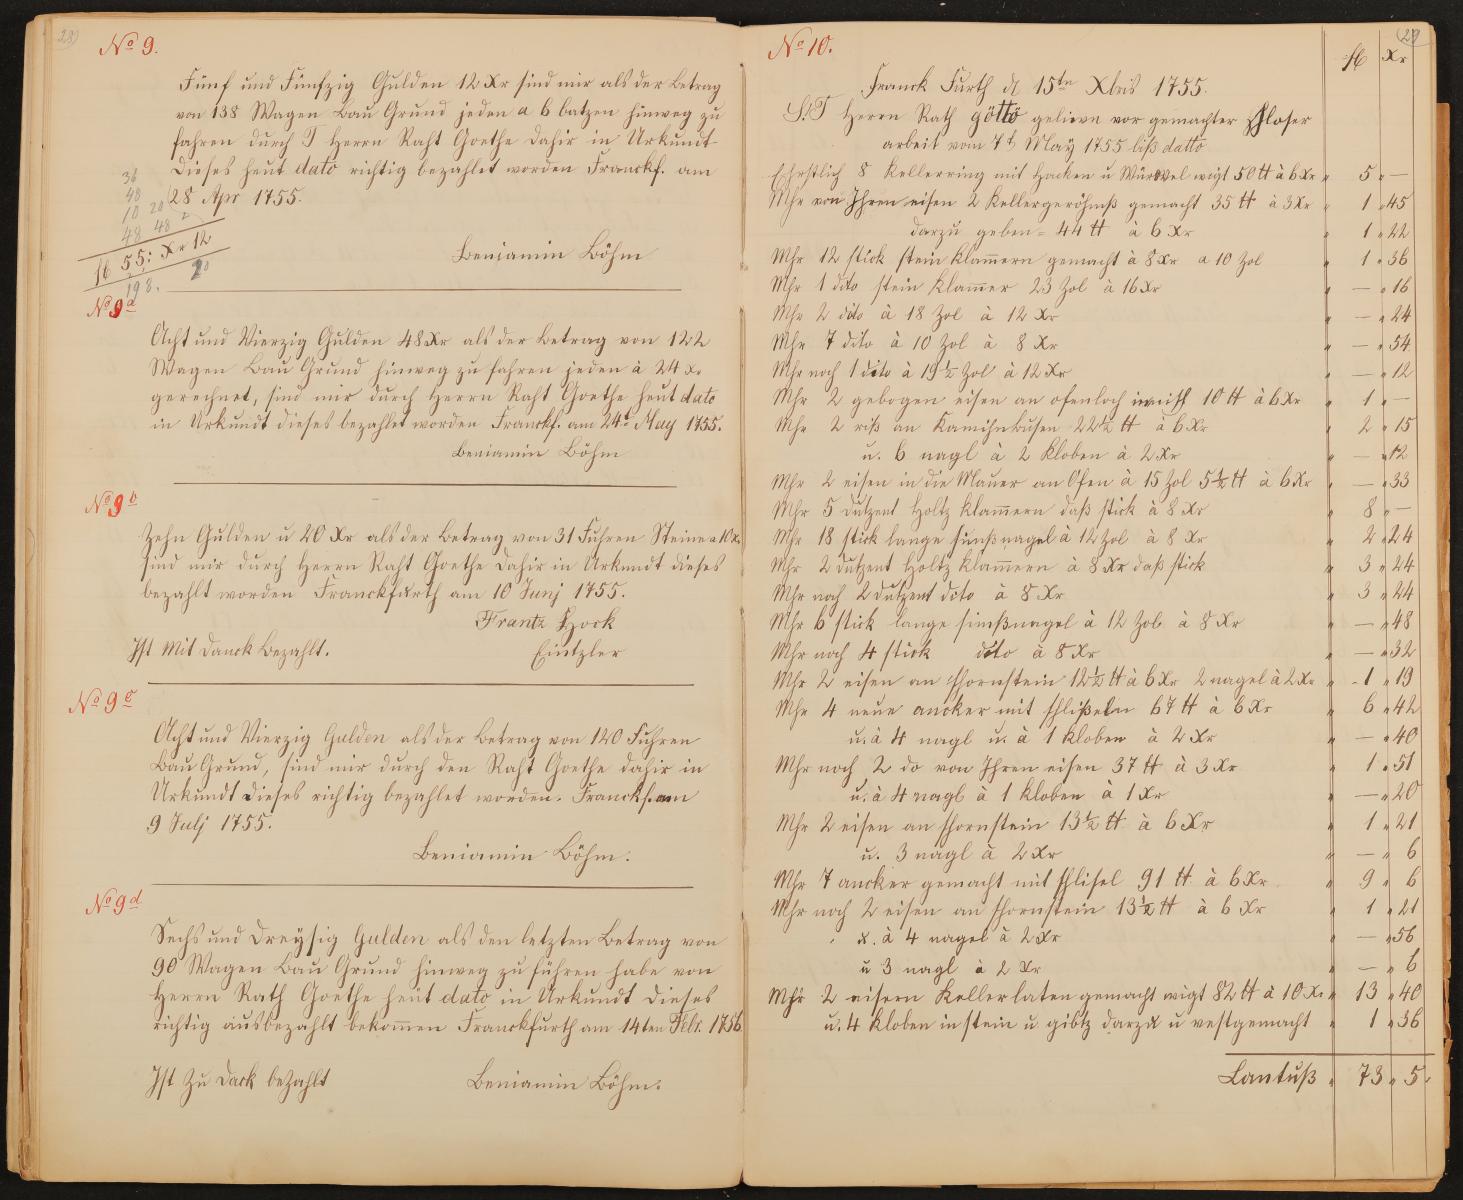 28)
No 9.
Fünf und Fünfzig Gulden 12 Xr sind mir als der Betrag
von 138 Wagen Bau Grund jeden a 6 batzen hinweg zu
fahren durch T Herrn Raht Goethe dahir in Urkundt
dieses heut dato richtig bezahlet worden Franckf. am
28 Apr 1755.
36
48
10 20
48 48
16 55: Xr 12
198.
Beniamin Böhm
No 9a
Acht und Vierzig Gulden 48 Xr als der Betrag von 122
Wagen Bau Grund hinweg zu fahren jeden à 24 Xr
gerechnet, sind mir durch Herrn Raht Goethe heut dato
in Urkundt dieses bezahlet worden Franckf. am 24t May 1755.
Beniamin Böhm
No 9b
Zehn Gulden u 20 Xr als der Betrag von 31 Fuhren Steine a 10 Xr
sind mir durch Herrn Raht Goethe dahir in Urkundt dieses
bezahlt worden Franckfurth am 10 Junj 1755.
Frantz Hock
Ist mit Danck bezahlt.
Eintzler
No 9c
Acht und Vierzig Gulden als der Betrag von 120 Fuhren
Bau Grund, sind mir durch den Raht Goethe dahir in
Urkundt dieses richtig bezahlet worden. Franckf. am
9 Julj 1755.
Beniamin Böhm.
No 9d
Sechs und Dreysig Gulden als den letzten Betrag von
90 Wagen Bau Grund hinweg zu führen habe von
Herrn Rath Goethe heut dato in Urkundt dieses
richtig ausbezahlt bekommen Franckfurth am 14ten Febr. 1756
Ist zu Dack bezahlt
Beniamin Böhm.
29)
No 10.
fl Xr
Franck Furth d 15tn Xbris 1755.
S.T Herrn Rath götte gelievn vor gemachter Schloser
arbeit vom 7t May 1755 biß datto
Ehrstlich 8 Kellerring mit Hacken u Würwel wigt 50 tt à 6 Xr " 5 " —
Mhr von Ihren eisen 2 Kellergeröhmß gemacht 35 tt à 3 Xr " 1 " 45
darzu geben = 44 tt à 6 Xr " 1 " 22
Mhr 12 stick stein klammern gemacht à 8 Xr a 10 Zol " 1 " 36
Mhr 1 dito stein klammer 23 Zol à 16 Xr " — " 16
Mhr 2 dito à 18 Zol à 12 Xr " — " 24
Mhr 7 dito à 10 Zol à 8 Xr " — " 54
Mhr noch 1 dito à 19 1/2 Zol à 12 Xr " — " 12
Mhr 2 gebogen eisen an ofenloch 10 tt à 6 Xr " 1 " —
Mhr 2 riß an Kamihnbusen 22 1/2 tt à 6 Xr " 2 " 15
u. 6 nagl à 2 kloben à 2 Xr " — " 12
Mhr 2 eisen in die Mauer an Ofen à 15 Zol 5 1/2 tt à 6 Xr " — " 33
Mhr 5 dutzent Holtz klammern daß stick à 8 Xr " 8 " —
Mhr 18 stick lange simßnagel à 12 Zol à 8 Xr " 2 " 24
Mhr 2 dutzent Holtz klammern à 8 Xr daß stick " 3 " 24
Mhr noch 2 dutzent dito à 8 Xr " 3 " 24
Mhr 6 stick lange simßnagel à 12 Zol à 8 Xr " — " 48
Mhr noch 4 stick dito à 8 Xr " — " 32
Mhr 2 eisen an schornstein 12 1/2 tt à 6 Xr 2 nagel à 2 Xr " 1 " 19
Mhr 4 neue ancker mit schlißeln 67 tt à 6 Xr " 6 " 42
u. à 4 nagl u. à 1 kloben à 2 Xr " — " 40
Mhr noch 2 do von Ihren eisen 37 tt à 3 Xr " 1 " 51
u. à 4 nagl à 1 kloben à 1 Xr " — " 20
Mhr 2 eisen an schornstein 13 1/2 tt à 6 Xr " 1 " 21
u. 3 nagl à 2 Xr " — " 6
Mhr 7 ancker gemacht mit schlisel 91 tt à 6 Xr " 9 " 6
Mhr noch 2 eisen an schornstein 13 1/2 tt à 6 Xr " 1 " 21
x. à 4 nagel à 2 Xr " — " 56
u 3 nagl à 2 Xr " — " 6
Mhr 2 eisern Kellerlaten gemacht wigt 82 tt à 10 Xr " 13 " 40
u. 4 kloben in stein u gibtz darzu u vestgemacht " 1 " 36
Lantuß " 73 " 5.